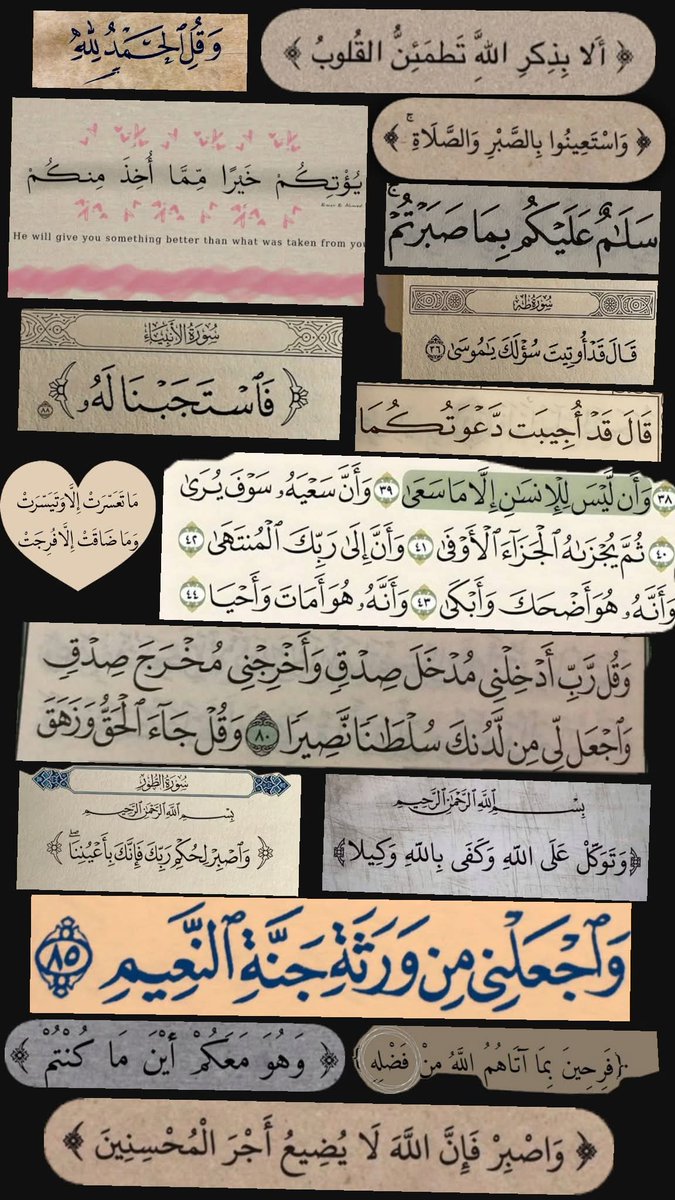 وَقُلِ ٱلْحَمْدُ لِلَّهِ
﴿ أَلَا بِذِكرِ اللَّهِ تَطمَئِنُّ القُلوبُ ﴾
﴿ وَاسْتَعِينُوا بِالصَّبْرِ وَالصَّلَاةِ ۚ ﴾
يُؤْتِكُمْ خَيْرًا مِّمَّا أُخِذَ مِنكُمْ
He will give you something better than what was taken from you
سَلَـٰمٌ عَلَيْكُم بِمَا صَبَرْتُمْ ۚ
سُورَةُ طه
قَالَ قَدْ أُوتِيتَ سُؤْلَكَ يَـٰمُوسَىٰ ٣٦
سُورَةُ الأَنْبِيَاءِ
﴿ فَٱسْتَجَبْنَا لَهُۥ ﴾ ٨٨
قَالَ قَدْ أُجِيبَت دَّعْوَتُكُمَا
مَا تَعَسَّرَتْ إِلَّا وَتَيَسَّرَتْ
وَمَا ضَاقَتْ إِلَّا فُرِجَتْ
٣٨ وَأَن لَّيْسَ لِلْإِنسَـٰنِ إِلَّا مَا سَعَىٰ ٣٩ وَأَنَّ سَعْيَهُۥ سَوْفَ يُرَىٰ
٤٠ ثُمَّ يُجْزَىٰهُ ٱلْجَزَآءَ ٱلْأَوْفَىٰ ٤١ وَأَنَّ إِلَىٰ رَبِّكَ ٱلْمُنتَهَىٰ ٤٢
وَأَنَّهُۥ هُوَ أَضْحَكَ وَأَبْكَىٰ ٤٣ وَأَنَّهُۥ هُوَ أَمَاتَ وَأَحْيَا ٤٤
وَقُل رَّبِّ أَدْخِلْنِى مُدْخَلَ صِدْقٍ وَأَخْرِجْنِى مُخْرَجَ صِدْقٍ
وَٱجْعَل لِّى مِن لَّدُنكَ سُلْطَـٰنًا نَّصِيرًا ٨٠ وَقُلْ جَآءَ ٱلْحَقُّ وَزَهَقَ
سُورَةُ الطُّورِ
بِسْمِ اللَّهِ الرَّحْمَٰنِ الرَّحِيمِ
﴿ وَٱصْبِرْ لِحُكْمِ رَبِّكَ فَإِنَّكَ بِأَعْيُنِنَا ۖ ﴾
بِسْمِ اللَّهِ الرَّحْمَٰنِ الرَّحِيمِ
﴿وَتَوَكَّلْ عَلَى اللَّهِ وَكَفَى بِاللَّهِ وَكِيلًا﴾
وَٱجْعَلْنِى مِن وَرَثَةِ جَنَّةِ ٱلنَّعِيمِ ٨٥
﴿ وَهُوَ مَعَكُمْ أَيْنَ مَا كُنْتُمْ ﴾
{فَرِحِينَ بِمَا آتَاهُمُ اللَّهُ مِنْ فَضْلِهِ}
﴿ وَاصْبِرْ فَإِنَّ اللَّهَ لَا يُضِيعُ أَجْرَ الْمُحْسِنِينَ ﴾